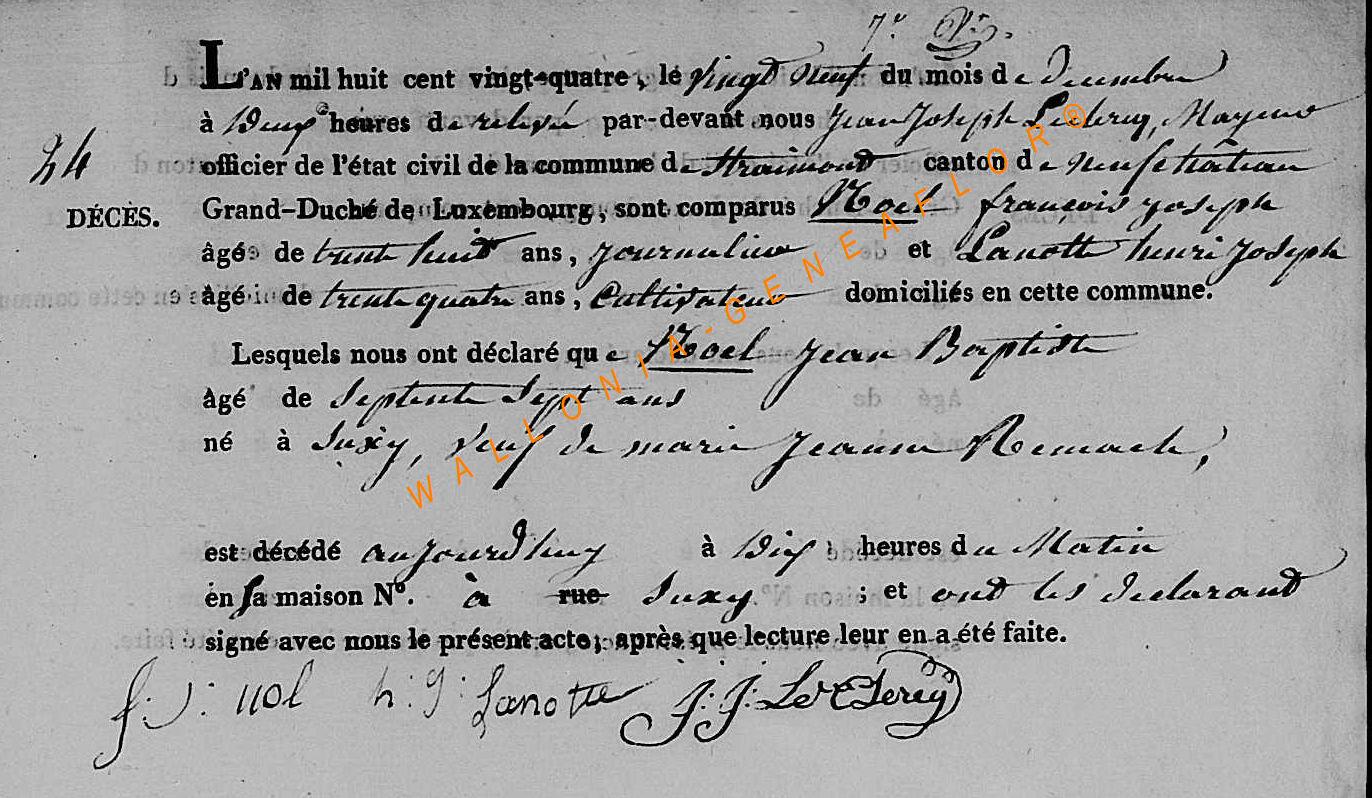 7.e
L'AN mil huit cent vingt-quatre, le vingt neuf du mois de decembre
à Deux heures de relevée par-devant nous Jean Joseph Leclercq, Mayeur
24
officier de l'état civil de la commune de Straimont canton de neufchâteau
DÉCÈS.
Grand-Duché de Luxembourg, sont comparus Noel françois joseph
âgé de trente huit ans, journalier et Lanotte henri joseph
âgé de trente quatre ans, Cultivateur domiciliés en cette commune.
Lesquels nous ont déclaré que Noel jean Baptiste
âgé de Septente Sept ans
né à Suxy, veuf de marie jeanne Remacle,
est décédé aujourdhuy à Dix heures du Matin
en sa maison N°. à rue Suxy ; et ont les declarant
signé avec nous le présent acte, après que lecture leur en a été faite.
f: J: nol h: J: Lanotte J: J: Le Clercq
WALLONIA-GENEAFLOR®